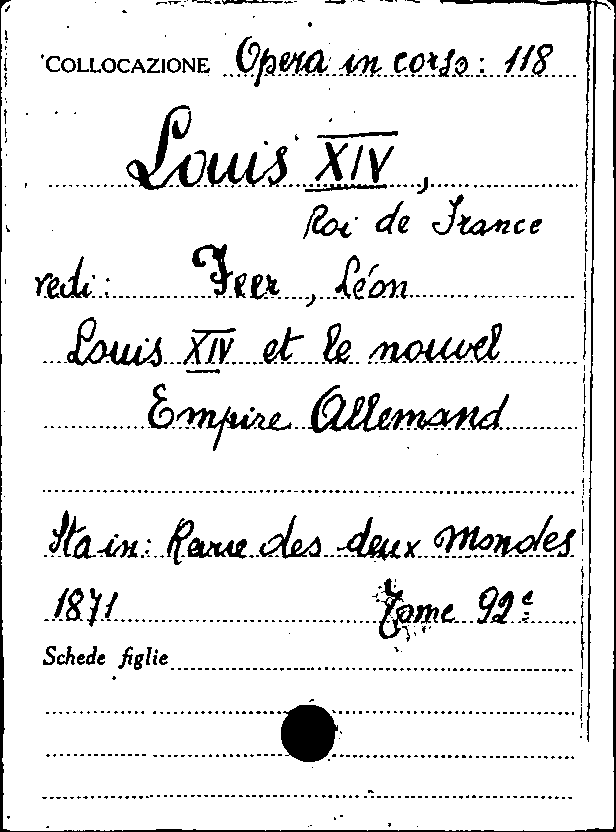 COLLOCAZIONE Opera in corso: 118
Louis XIV,
Roi de France
vedi: Feer, Léon
Louis XIV et le nouvel
Empire Allemand
Sta in: Revue des deux Mondes
1871 Tome 92e
Schede figlie